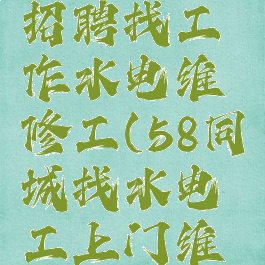 招聘找工
作水电维
修工(58同
城找水电
工上门维